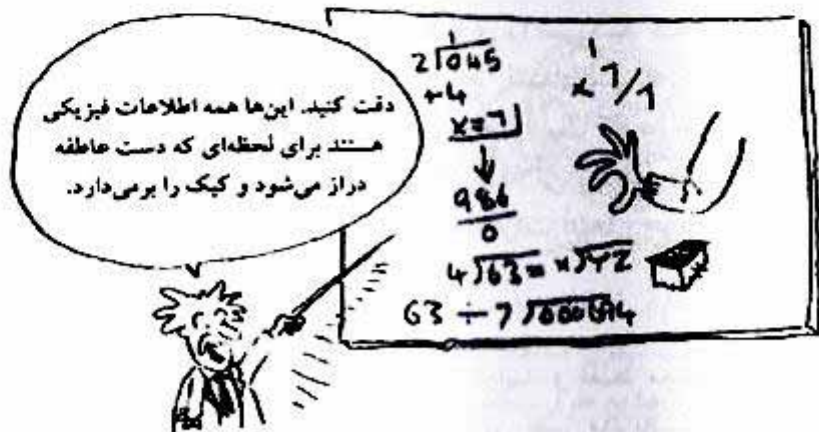 دقت کنید. این‌ها همه اطلاعات فیزیکی
هستند برای لحظه‌ای که دست عاطفه
دراز می‌شود و کیک را برمی‌دارد.
1
2 045
÷4
x=7
↓
986
0
4 63= x YZ
63 ÷ 7
1
x 7/7